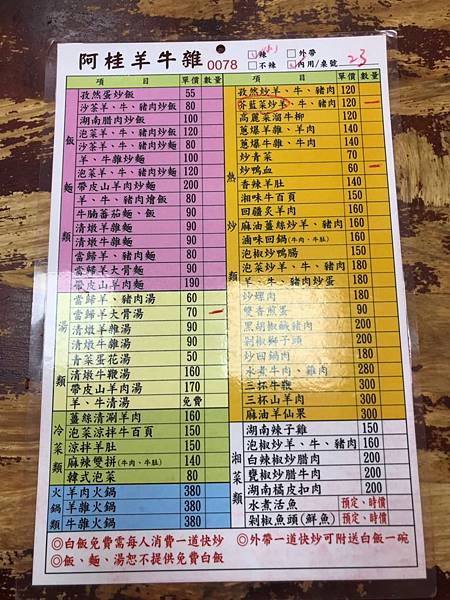 阿桂羊牛雜 0078
辣 外帶
不辣 內用/桌號 23
項 目 單價 數量
飯麵類
孜然蛋炒飯 55
沙茶羊、牛、豬肉炒飯 80
湖南腊肉炒飯 100
泡菜羊、牛、豬肉炒飯 120
沙茶羊、牛、豬肉炒麵 80
羊、牛雜炒麵 100
泡菜羊、牛、豬肉炒麵 120
帶皮山羊肉炒麵 200
羊、牛、豬肉燴飯 80
牛腩蕃茄麵、飯 90
清燉羊雜麵 90
清燉牛雜麵 90
當歸羊、豬肉麵 80
當歸羊大骨麵 90
帶皮山羊肉麵 190
湯類
當歸羊、豬肉湯 60
當歸羊大骨湯 70
清燉羊雜湯 70
清燉牛雜湯 70
青菜蛋花湯 50
清燉牛鞭湯 160
帶皮山羊肉湯 170
羊、牛清湯 免費
冷菜類
薑絲清涮羊肉 160
泡菜涼拌牛百頁 150
涼拌羊肚 150
麻辣雙拼(牛肉、牛肚) 140
韓式泡菜 80
火鍋類
羊肉火鍋 380
羊雜火鍋 380
牛雜火鍋 380
項 目 單價 數量
熱炒類
孜然炒羊、牛、豬肉 120
芥藍菜炒羊、牛、豬肉 120
高麗菜溜牛柳 120
蔥爆羊雜、羊肉 140
蔥爆牛雜、牛肉 140
炒青菜 70
炒鴨血 60
香辣羊肚 140
湘味牛百頁 150
回疆炙羊肉 160
麻油薑絲炒羊、豬肉 160
滷味回鍋(牛肉、牛肚) 160
泡椒炒鴨腸 150
泡菜炒羊、牛、豬肉 180
羊、牛、豬肉炒蛋 140
炒螺肉 180
雙香煎蛋 90
黑胡椒鹹豬肉 200
剁椒獅子頭 200
炒回鍋肉 180
水煮牛肉、雜肉 280
三杯牛鞭 300
三杯山羊肉 300
麻油羊仙果 300
湘菜類
湖南辣子雞 150
泡椒炒羊、牛、豬肉 160
白辣椒炒腊肉 200
甕椒炒腊牛肉 200
湖南橘皮扣肉 200
水煮活魚 預定、時價
剁椒魚頭(鮮魚) 預定、時價
◎白飯免費需每人消費一道快炒
◎外帶一道快炒可附送白飯一碗
◎飯、麵、湯恕不提供免費白飯